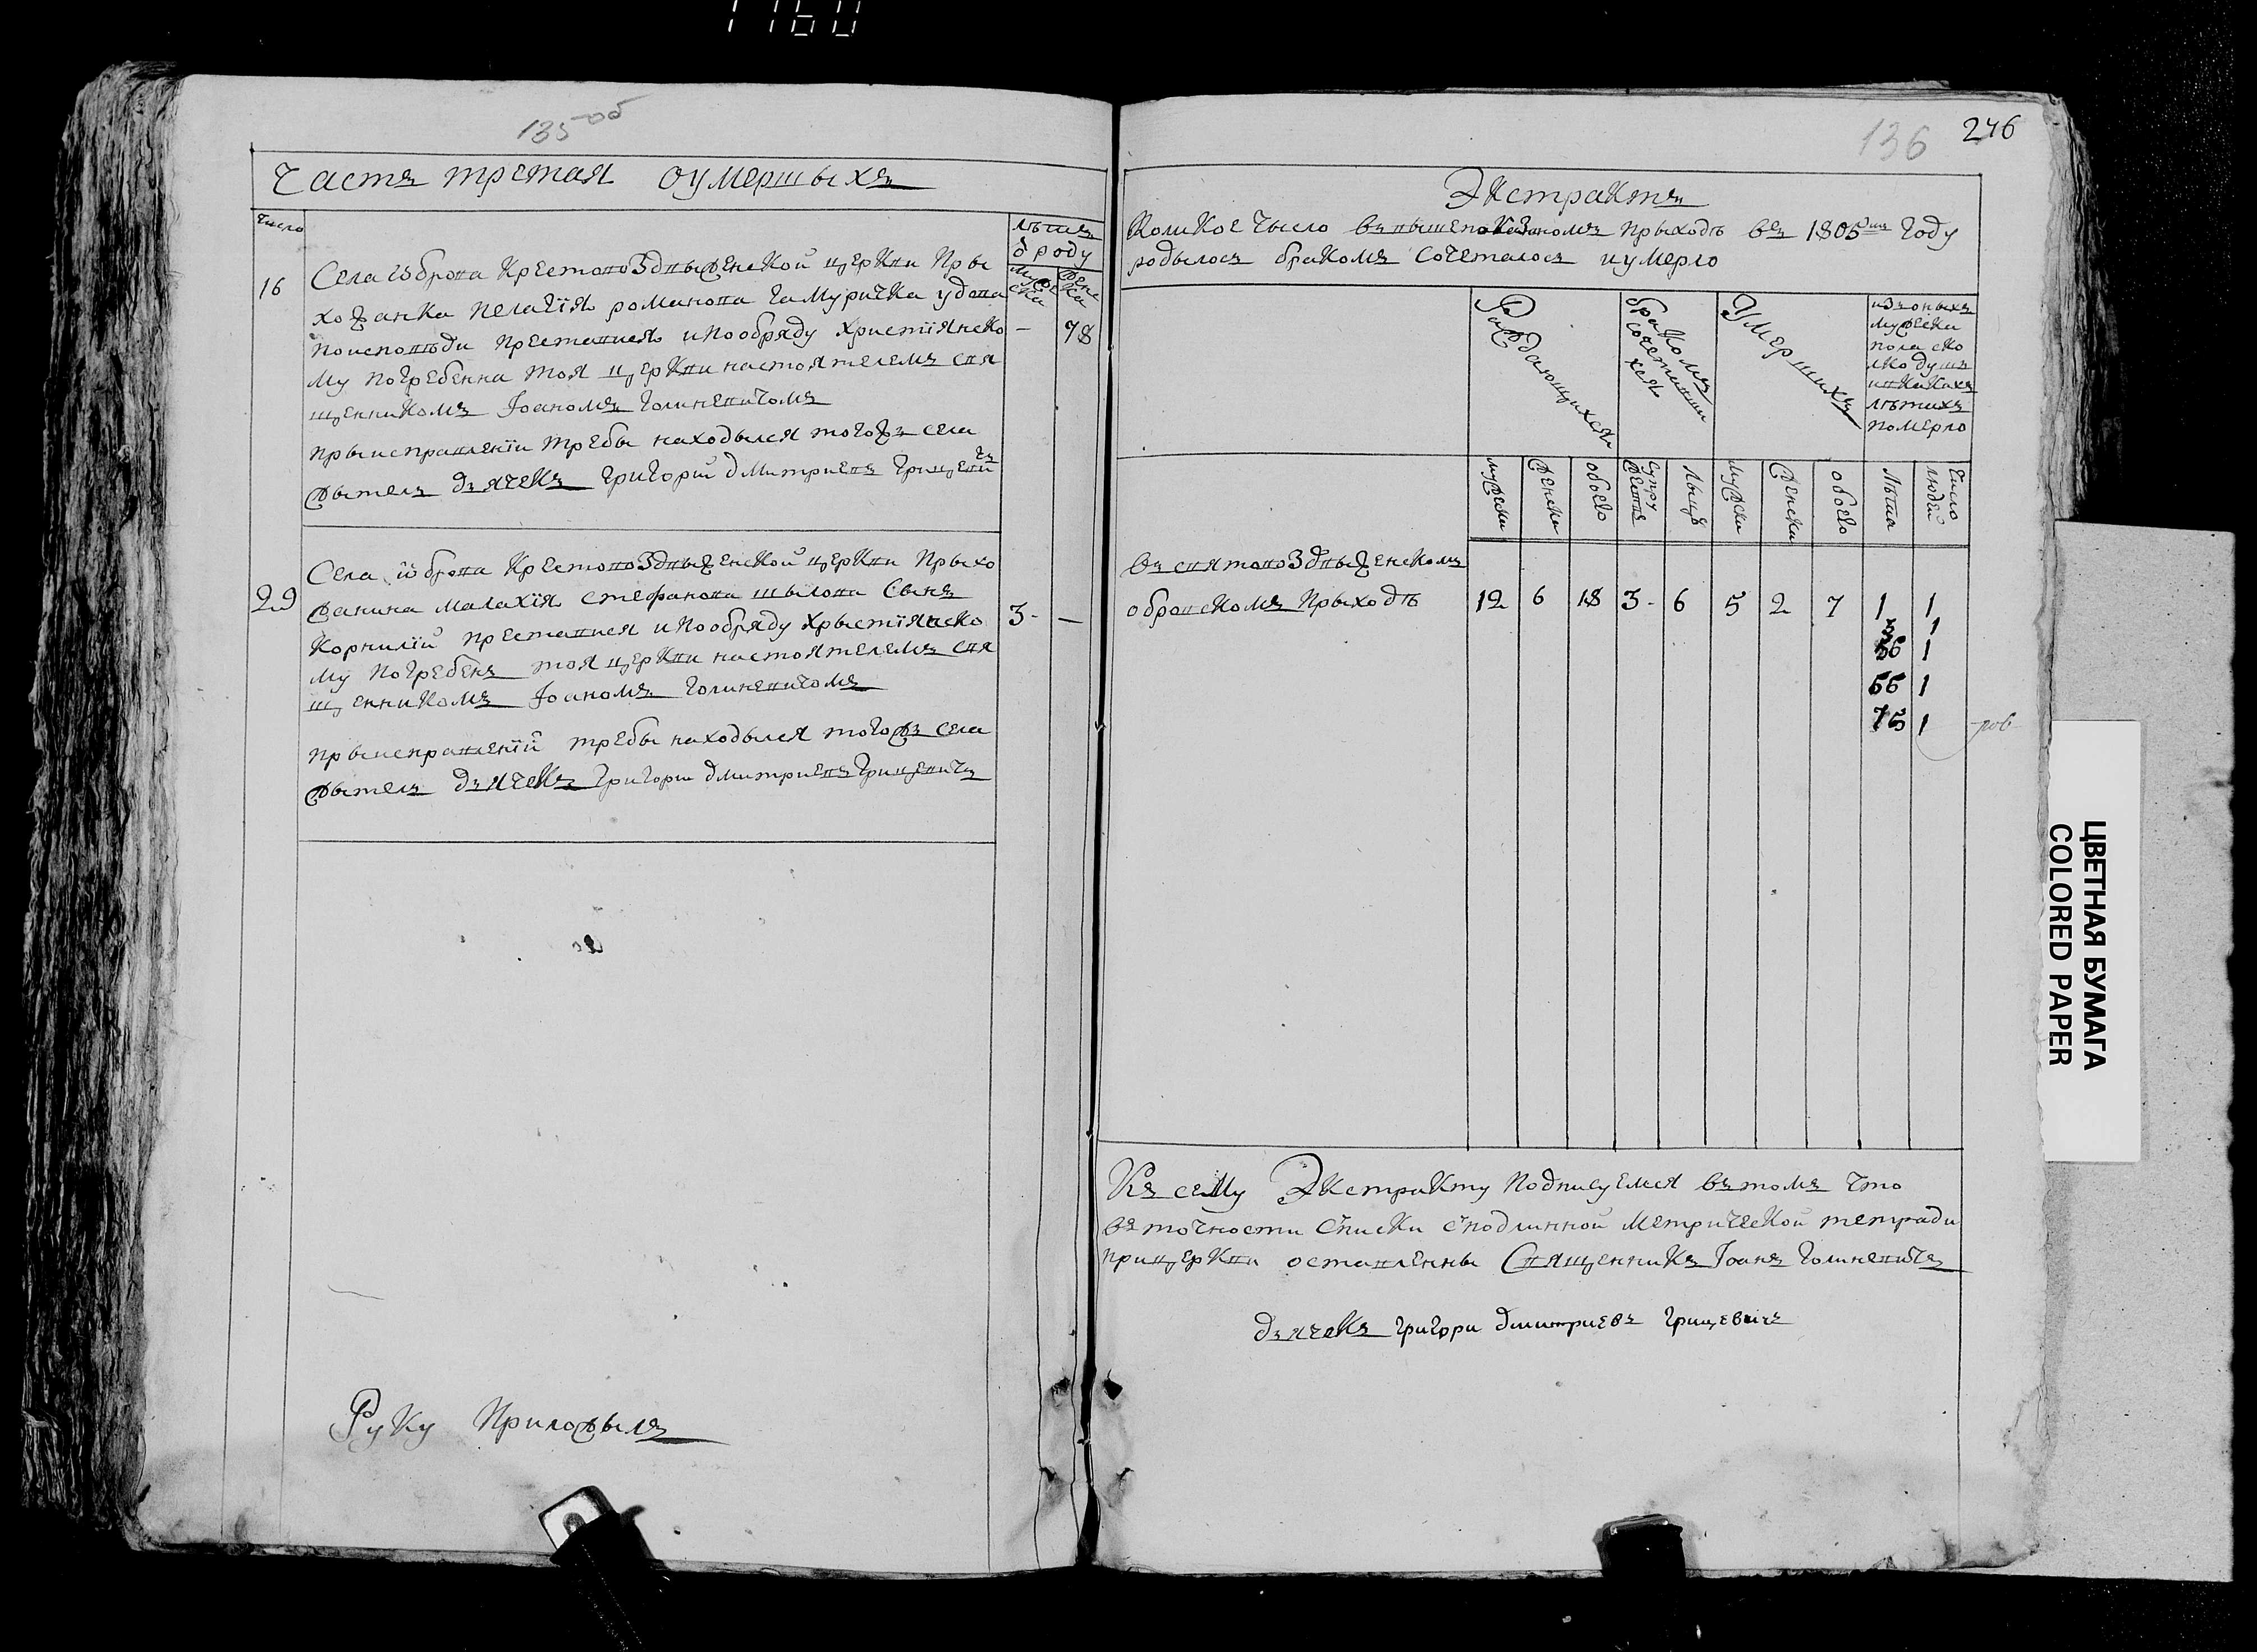 1160
135 об
Часть третая оумершыхъ
число
лѣта
ѿ роду
мужеска
женска
16
Села Ѡброва Крестовоздвыженской церкви Пры
хожанка Пелагїя романова Гамуричка удова
Поисповѣди Преставися и пообряду Христїянско
– 78
му погребенна тоя церкви настоятелемъ свя
щенникомъ ІоаномъГолиневичомъ
Прыисправленїи требы находылся тогожъ села
жытель дъячекъ Григорий дмитриевъ Грицевичъ
29
Села Ѡброва Крестовоздвыженской церкви Прыхо
жанина Малахїя стефанова шылови Сынъ
3 - –
Корнилїй преставися и пообряду Хрыстїянско
му погребенъ тоя церкви настоятелемъ свя
щенникомъ Іоаномъ Голиневичомъ
Прыисправленїи требы находылся тогожъ села
жытель дъячекъ Григори дмитриевъ Грицевичъ
Руку Приложылъ
136 246
Экстрактъ
Коликое Чысло ввышепоказаномъ прыходѣ въ 1805мъ Году
родылось бракомъ сочеталось и умерло
Раждающихся
бракомъ
сочетавши
хся
Умершихъ
изъ оныхъ
мужеска
пола ско
лко душъ
ивкакихъ
лѣтахъ
померло
мужска
женска
обоего
супру
жествъ
лыцъ
мужска
женска
обоего
лѣта
Число
людей
въ святовоздвыженскомъ
обровскомъ Прыходѣ 12 6 18 3 - 6 5 2 7 1 1
3 1
36 1
56 1
75 1
Къ сему Экстракту подписуемся въ томъ что
въ точности списки сподлинной метрической тетради
при церкви оставленны Священникъ Іоанъ Голиневичъ
дъячекъ григори дмитриевъ грицевичъ
ЦВЕТНАЯ БУМАГА
COLORED PAPER